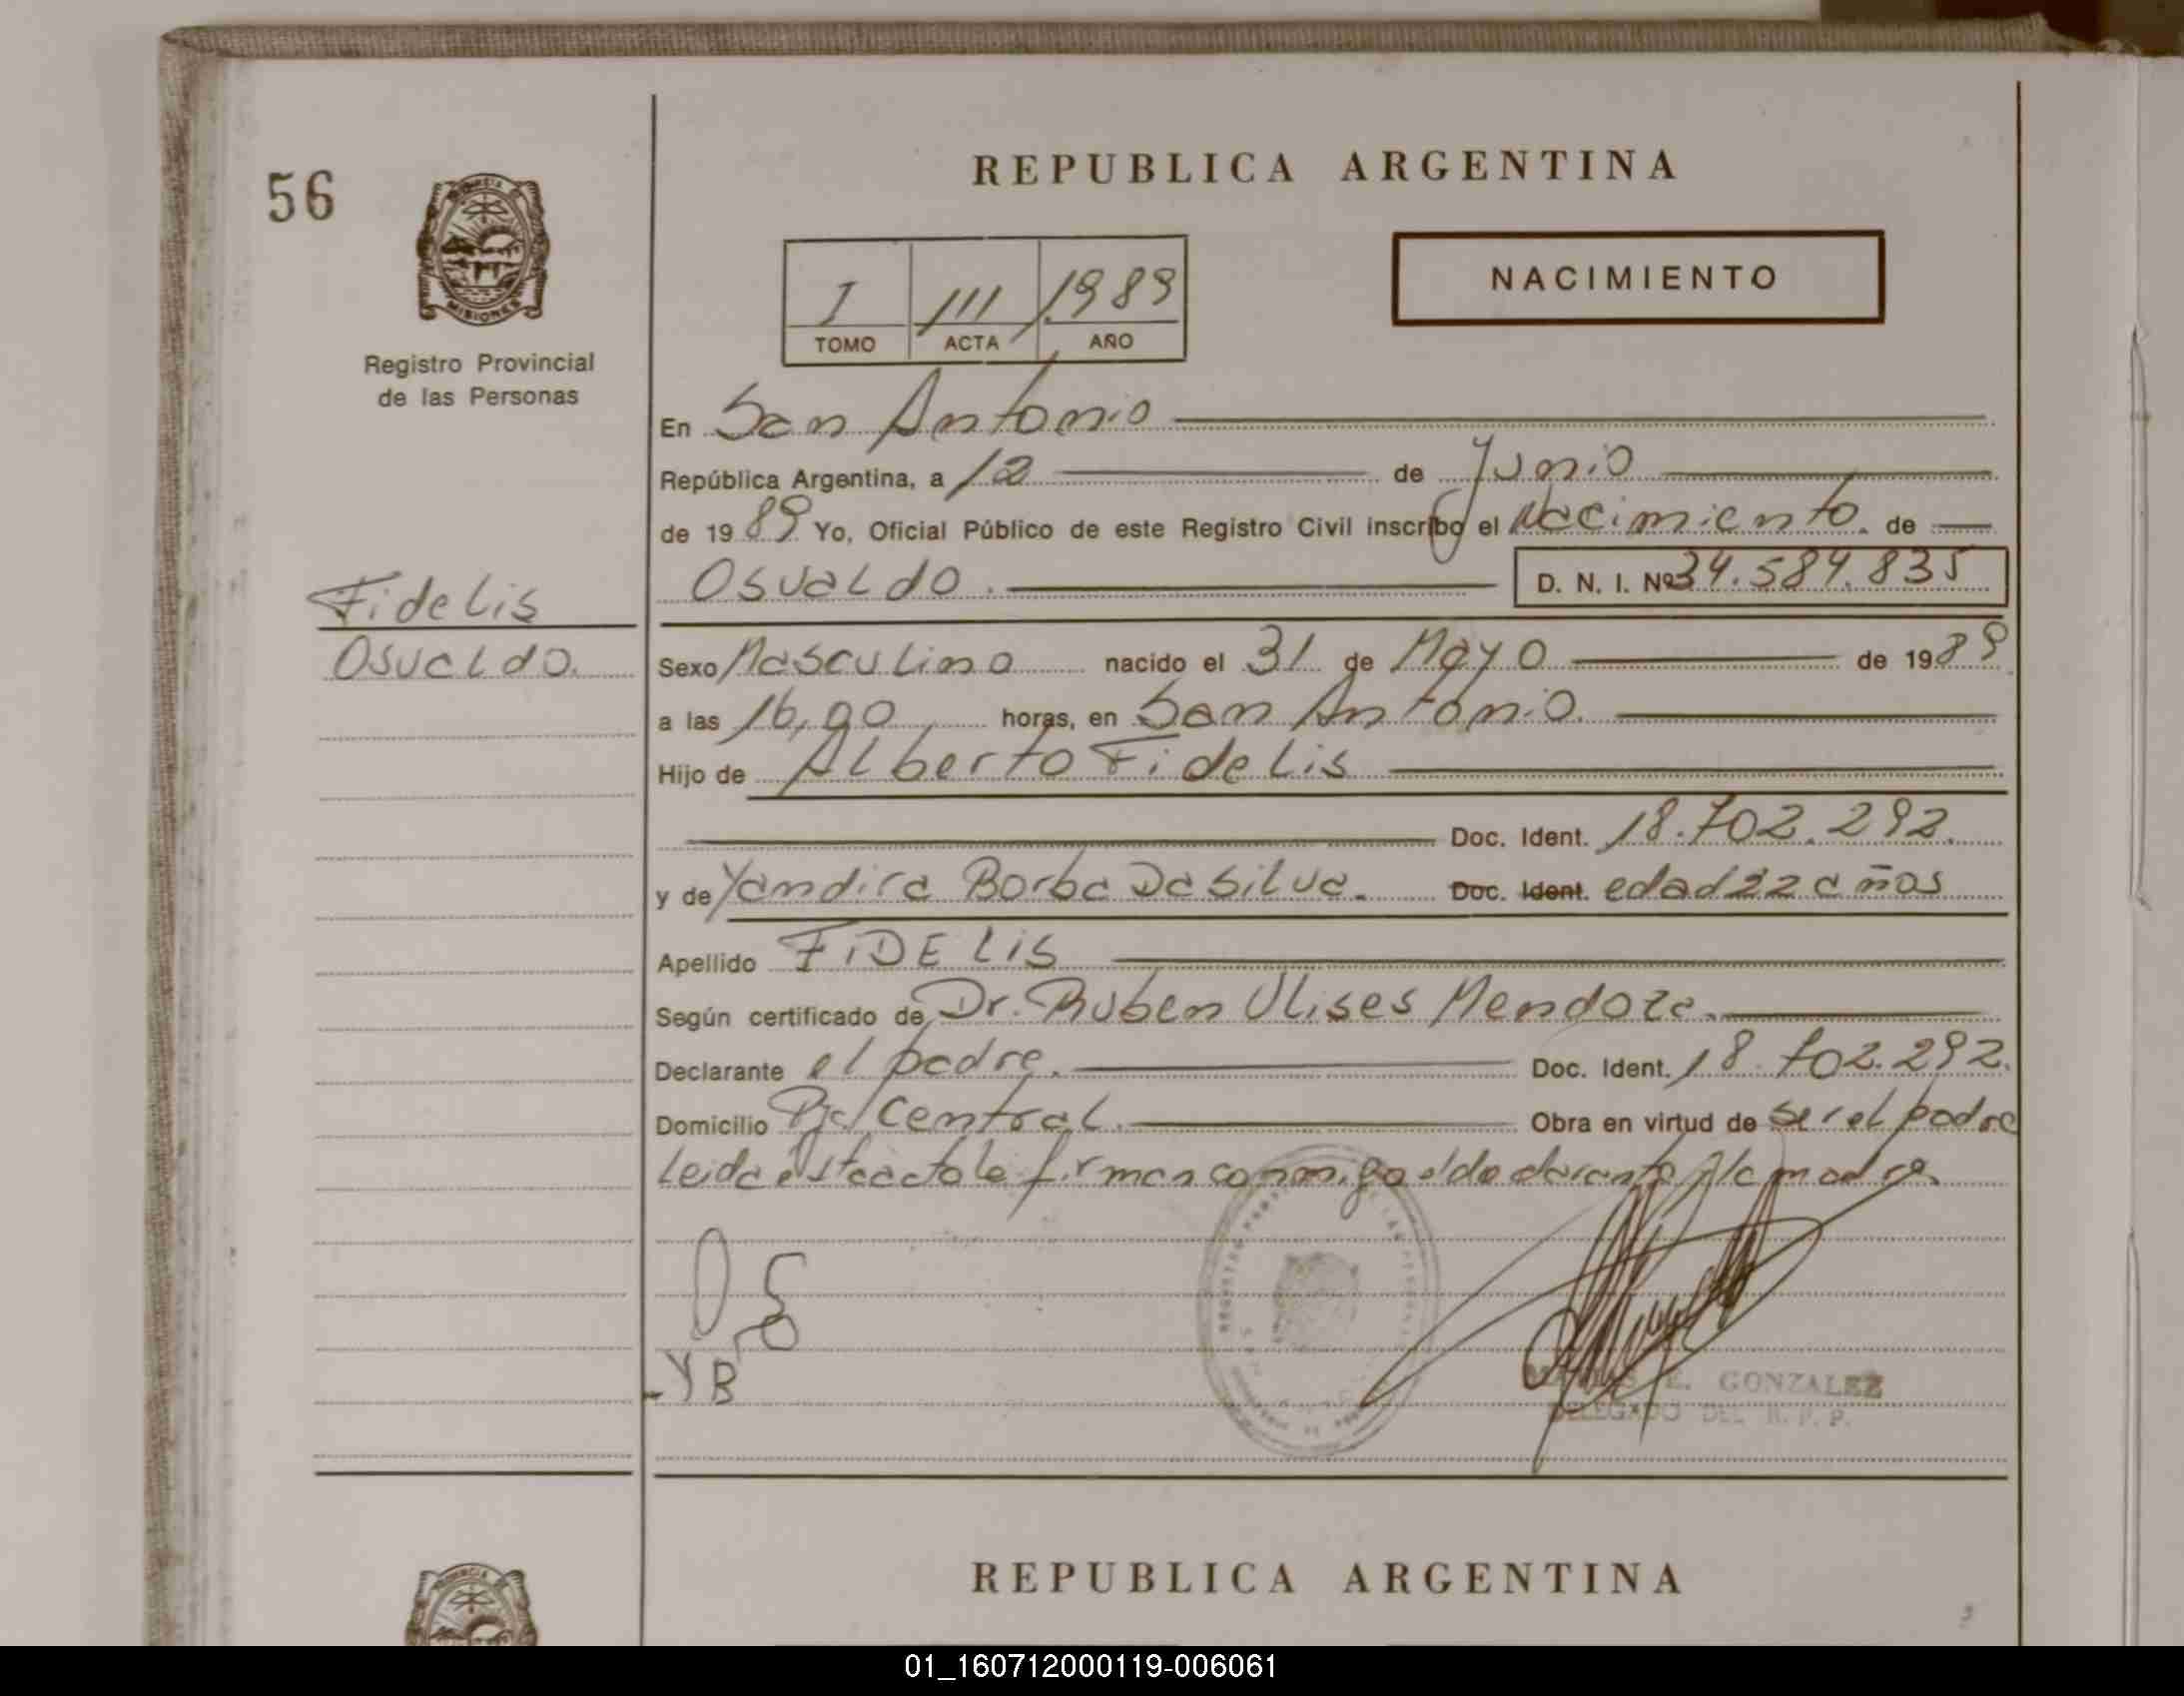 REPUBLICA ARGENTINA
56
MISIONES
Registro Provincial
de las Personas
I 111 1989
TOMO ACTA AÑO
NACIMIENTO
En San Antonio
República Argentina, a 12 de Junio
de 1989 Yo, Oficial Público de este Registro Civil inscribo el Nacimiento. de
Osvaldo. D. N. I. Nº 34.584.835
Fidelis
Osvaldo.
Sexo Masculino nacido el 31 de Mayo de 1989
a las 16,00 horas, en San Antonio.
Hijo de Alberto Fidelis
Doc. Ident. 18.702.292.
y de Yandira Borba Da Silva. Doc. Ident. edad 22 años
Apellido FIDELIS
Según certificado de Dr. Ruben Ulises Mendoza.
Declarante el padre. Doc. Ident. 18.702.292.
Domicilio Pje Central. Obra en virtud de ser el padre
Leida esta acta la firman conmigo el declarante y la madre
YB
E. GONZALEZ
DELEGADO DEL R. P. P.
REPUBLICA ARGENTINA
01_160712000119-006061